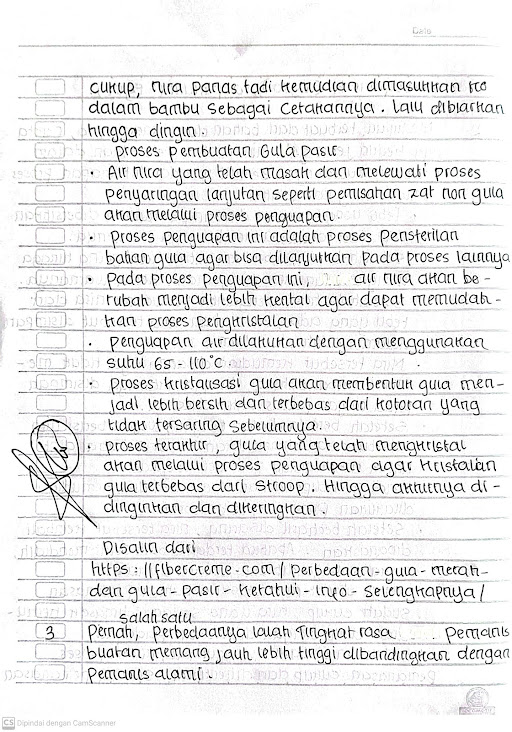 Date
cukup, nira panas tadi kemudian dimasukkan ke
dalam bambu sebagai cetakannya. lalu dibiarkan
hingga dingin.
proses pembuatan Gula pasir
• Air nira yang telah masak dan melewati proses
penyaringan lanjutan seperti pemisahan zat non gula
akan melalui proses penguapan.
• proses penguapan ini adalah proses pensterilan
bahan gula agar bisa dilanjutkan pada proses lainnya
• pada proses penguapan ini, air nira akan be-
rubah menjadi lebih kental agar dapat memudah-
kan proses pengkristalan
• penguapan air dilakukan dengan menggunakan
suhu 65 - 110°C
• proses kristalisasi gula akan membentuk gula men-
jadi lebih bersih dan terbebas dari kotoran yang
tidak tersaring sebelumnya.
• proses terakhir, gula yang telah mengkristal
akan melalui proses penguapan agar kristalan
gula terbebas dari stroop. Hingga akhirnya di-
dinginkan dan dikeringkan.
Disalin dari
https://fibercreme.com/perbedaan-gula-merah-
dan gula-pasir-ketahui-info-selengkapnya/
salah satu
3 Pernah, perbedaanya ialah Tingkat rasa Pemanis
buatan memang jauh lebih tinggi dibandingkan dengan
Pemanis alami.
CS Dipindai dengan CamScanner